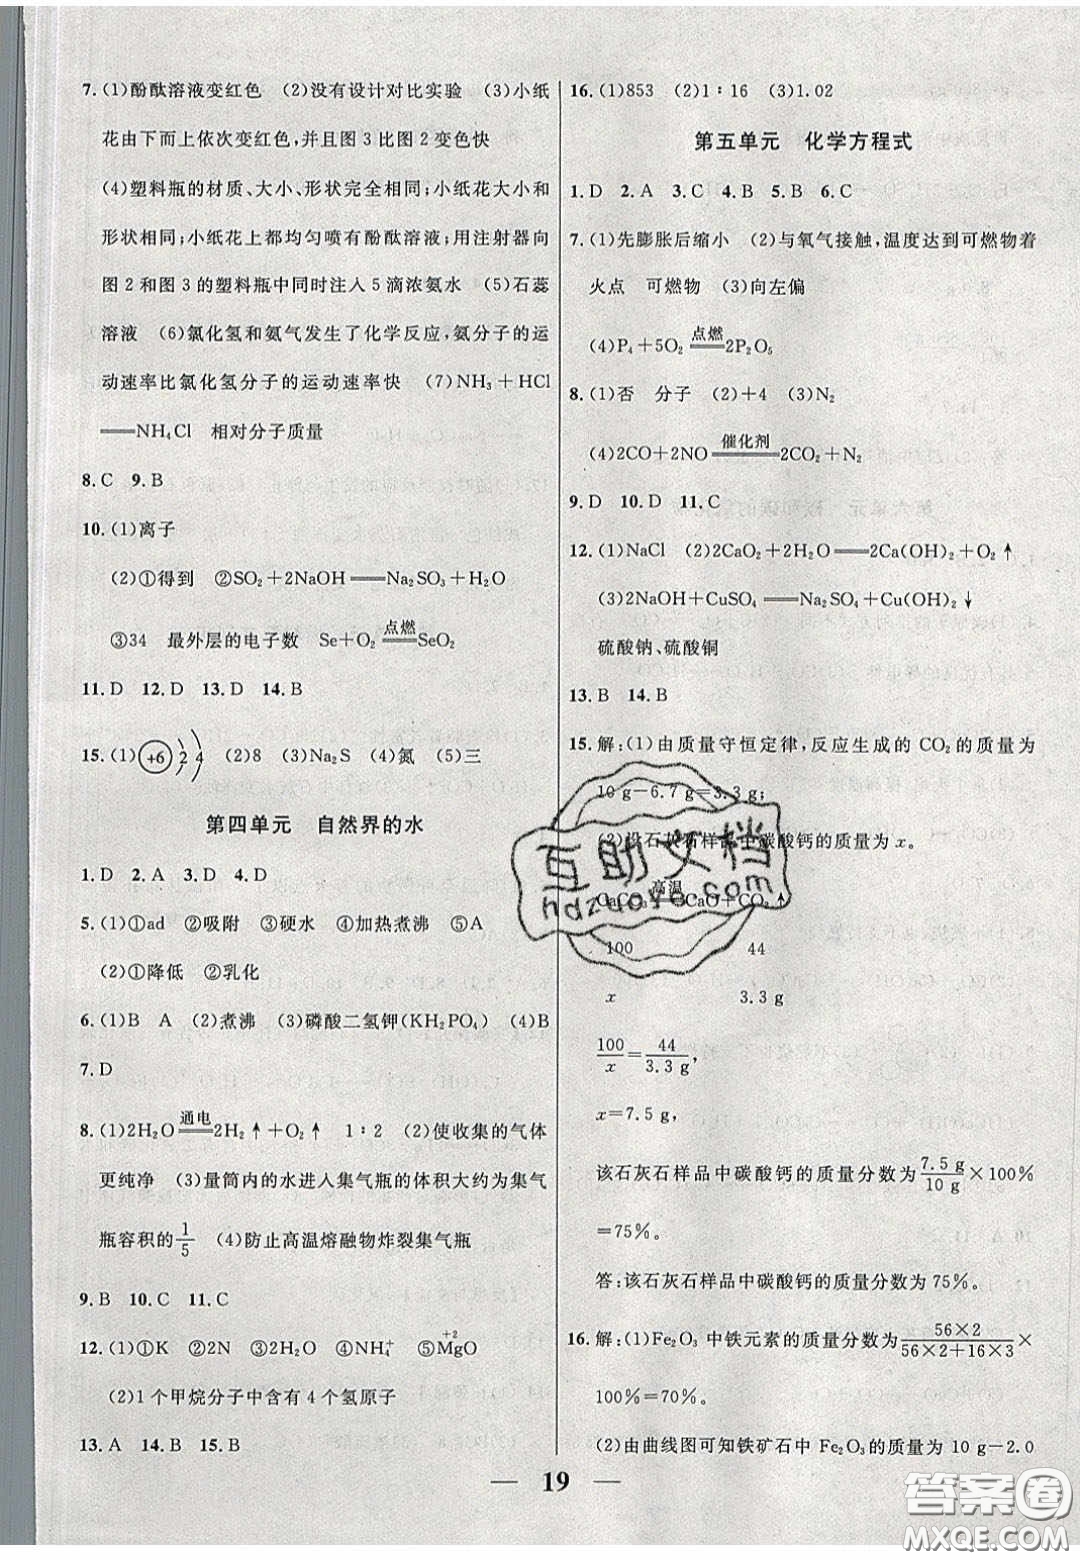 7. (1)酚酞溶液变红色 (2)没有设计对比实验 (3)小纸
花由下而上依次变红色,并且图3比图2变色快
(4)塑料瓶的材质、大小、形状完全相同;小纸花大小和
形状相同;小纸花上都均匀喷有酚酞溶液;用注射器向
图2和图3的塑料瓶中同时注入5滴浓氨水 (5)石蕊
溶液 (6)氯化氢和氨气发生了化学反应,氨分子的运
动速率比氯化氢分子的运动速率快 (7)NH₃+HCl
══NH₄Cl 相对分子质量
8. C 9. B
10. (1)离子
(2)①得到 ②SO₂+2NaOH══Na₂SO₃+H₂O
③34 最外层的电子数 Se+O₂ 点燃══ SeO₂
11. D 12. D 13. D 14. B
15. (1) +6 2 4 (2)8 (3)Na₂S (4)氮 (5)三
第四单元 自然界的水
1. D 2. A 3. D 4. D
5. (1)①ad ②吸附 ③硬水 ④加热煮沸 ⑤A
(2)①降低 ②乳化
6. (1)B A (2)煮沸 (3)磷酸二氢钾(KH₂PO₄) (4)B
7. D
8. (1)2H₂O 通电══ 2H₂↑+O₂↑ 1∶2 (2)使收集的气体
更纯净 (3)量筒内的水进入集气瓶的体积大约为集气
瓶容积的1/5 (4)防止高温熔融物炸裂集气瓶
9. B 10. C 11. C
12. (1)①K ②2N ③2H₂O ④NH₄⁺ ⑤+2 MgO
(2)1个甲烷分子中含有4个氢原子
13. A 14. B 15. B
16. (1)853 (2)1∶16 (3)1.02
第五单元 化学方程式
1. D 2. A 3. C 4. B 5. B 6. C
7. (1)先膨胀后缩小 (2)与氧气接触,温度达到可燃物着
火点 可燃物 (3)向左偏
(4)P₄+5O₂ 点燃══ 2P₂O₅
8. (1)否 分子 (2)+4 (3)N₂
(4)2CO+2NO 催化剂══ 2CO₂+N₂
9. D 10. D 11. C
12. (1)NaCl (2)2CaO₂+2H₂O══2Ca(OH)₂+O₂↑
(3)2NaOH+CuSO₄══Na₂SO₄+Cu(OH)₂↓
硫酸钠、硫酸铜
13. B 14. B
15. 解:(1)由质量守恒定律,反应生成的CO₂的质量为
10 g-6.7 g=3.3 g;
(2)设石灰石样品中碳酸钙的质量为x。
CaCO₃ 高温══ CaO+CO₂↑
100 44
x 3.3 g
100/x=44/3.3 g,
x=7.5 g,
该石灰石样品中碳酸钙的质量分数为7.5 g/10 g×100%
=75%。
答:该石灰石样品中碳酸钙的质量分数为75%。
16. 解:(1)Fe₂O₃中铁元素的质量分数为56×2/(56×2+16×3)×
100%=70%。
(2)由曲线图可知铁矿石中Fe₂O₃的质量为10 g-2.0
— 19 —
互助文档
hdzuoye.com
答案圈
MXQE.COM